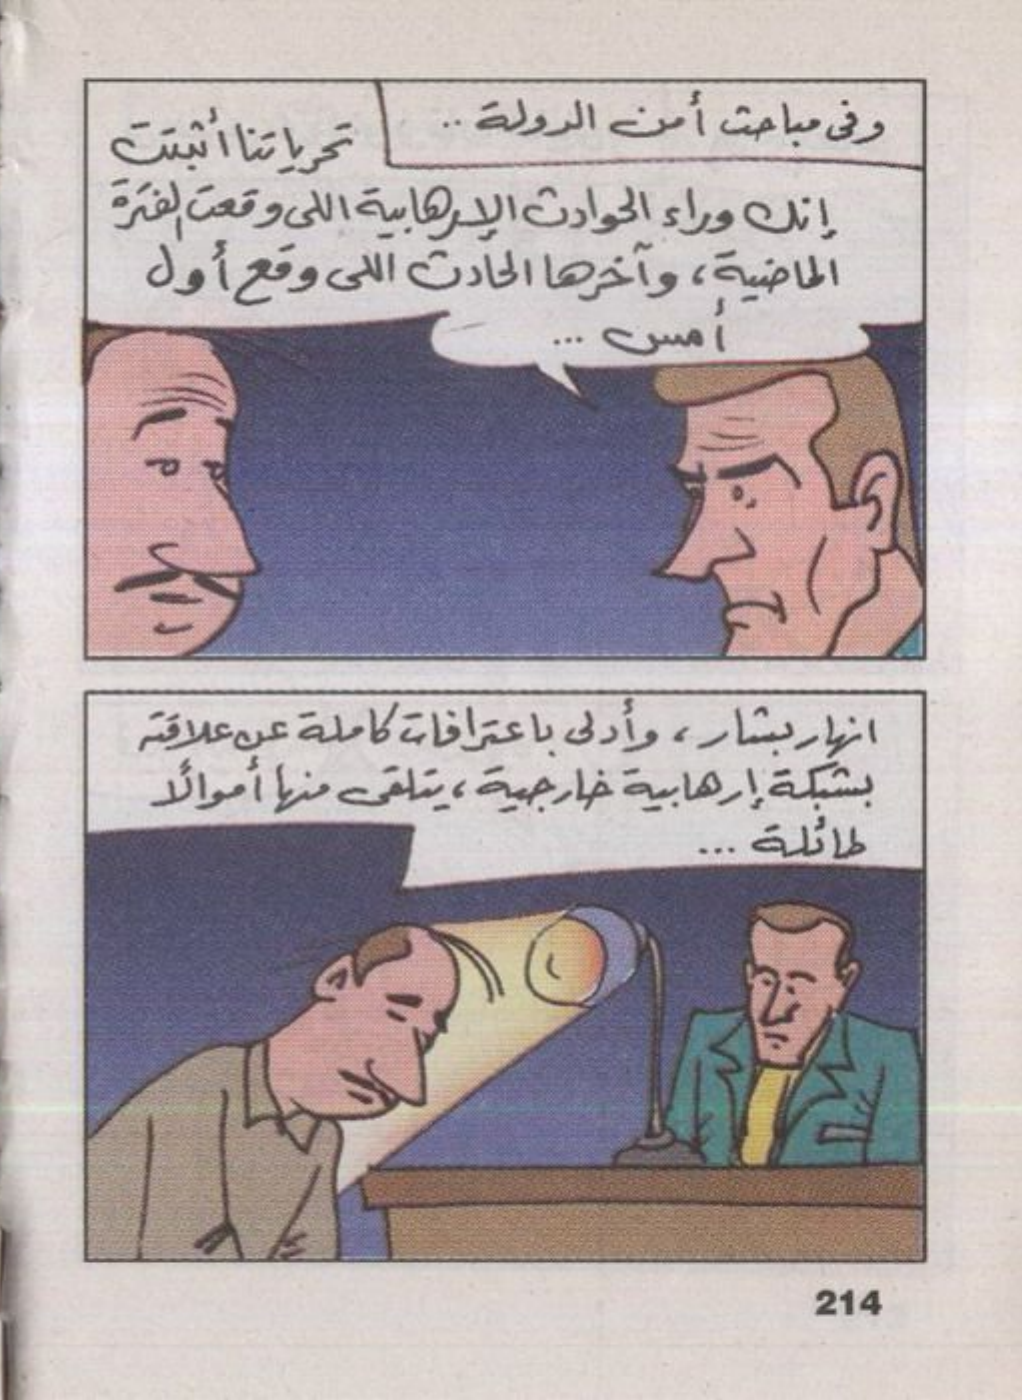 وفى مباحث أمن الدولة ..
تحرياتنا أثبتت
إنك وراء الحوادث الإرهابية اللى وقعت الفترة
الماضية، وآخرها الحادث اللى وقع أول
أمس ...
انهار بشار، وأدلى باعترافات كاملة عن علاقته
بشبكة إرهابية خارجية، يتلقى منها أموالًا
طائلة ...
214